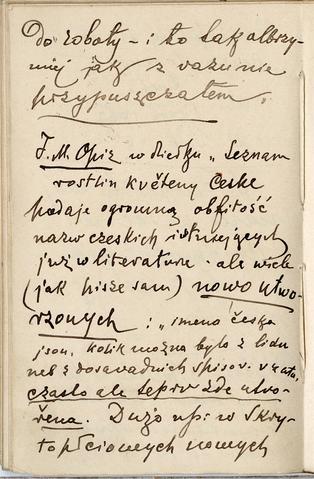 do roboty – i to tak olbrzy-
miej jak z razu nie
przypuszczałem.
F. M. Opiz w dziełku „Seznam
rostlin květeny české
podaje ogromną obfitość
nazw czeskich istniejących
już w literaturze – ale wiele
(jak pisze sam) nowo utwo-
rzonych : „jmena česka
jsou, kolik možna bylo z lidu
neb z dosavadnich spisov.
často ale teprv zde utvo-
řena. Dużo np. w Skry-
topłciowych nowych